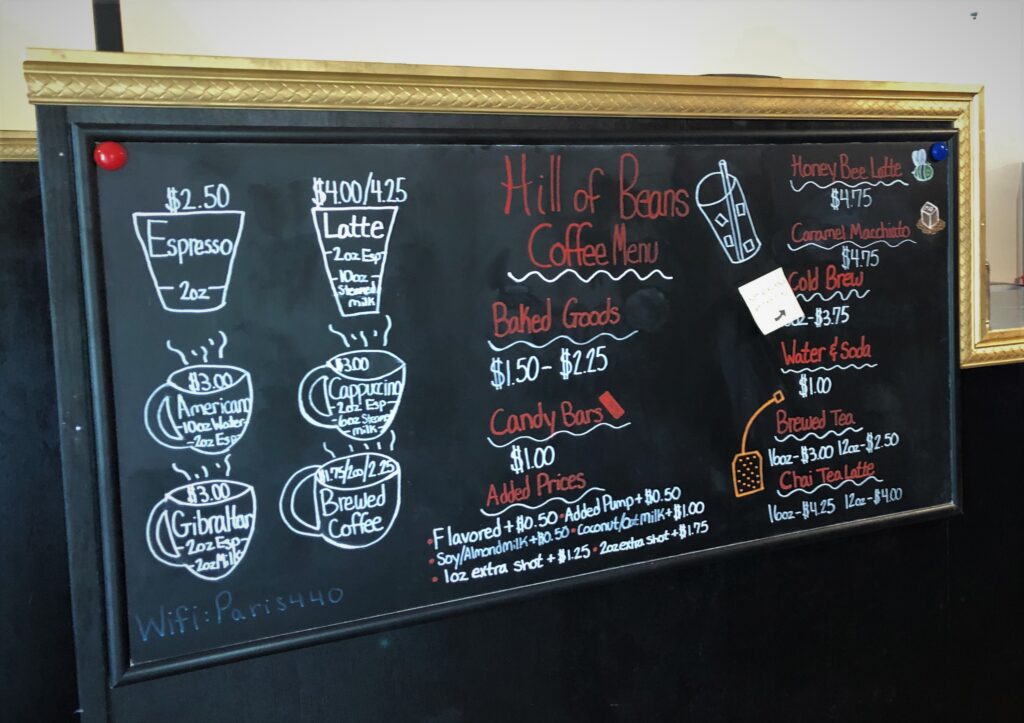 $2.50
Espresso
-2oz-
$4.00/4.25
Latte
-2oz Esp-
-10oz
Steamed
milk
$3.00
Americano
-10oz Water-
-2oz Esp-
$3.00
Cappuccino
-2oz Esp-
-6oz Steamed
milk-
$3.00
Gibraltar
-2oz Esp-
-2oz Milk-
$1.75/2.00/2.25
Brewed
Coffee
Wifi: Paris440
Hill of Beans
Coffee Menu
Baked Goods
$1.50 - $2.25
Candy Bars
$1.00
Added Prices
• Flavored + $0.50 • Added Pump + $0.50
• Soy/Almond milk + $0.50 • Coconut/Oat milk + $1.00
• 1oz extra shot + $1.25 • 2oz extra shot + $1.75
Honey Bee Latte
$4.75
Caramel Macchiato
$4.75
Cold Brew
oz - $3.75
Water & Soda
$1.00
Brewed Tea
16oz - $3.00 12oz - $2.50
Chai Tea Latte
16oz - $4.25 12oz - $4.00